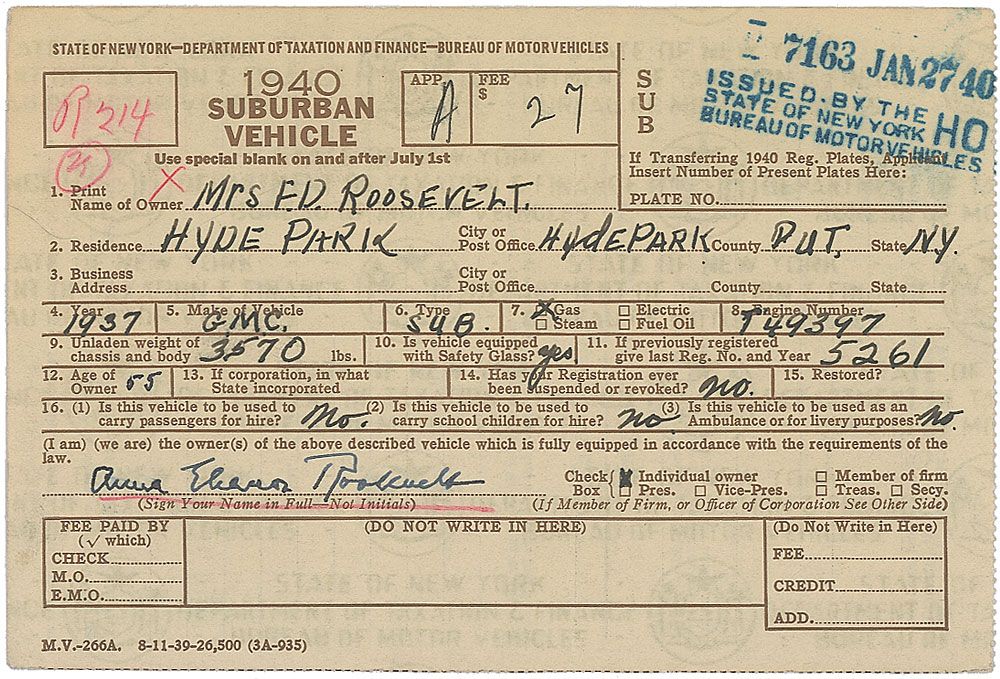 STATE OF NEW YORK—DEPARTMENT OF TAXATION AND FINANCE—BUREAU OF MOTOR VEHICLES
7163 JAN 27 40
ISSUED BY THE
STATE OF NEW YORK HO
BUREAU OF MOTOR VEHICLES
R 214
1940
SUBURBAN
VEHICLE
APP. A
FEE
$ 27
SUB
Use special blank on and after July 1st
If Transferring 1940 Reg. Plates, Applicant
Insert Number of Present Plates Here:
PLATE NO.
1. Print
Name of Owner X Mrs F.D. ROOSEVELT.
2. Residence HYDE PARK City or Post Office HydePARK County PUT. State N.Y.
3. Business Address City or Post Office County State
4. Year 1937 5. Make of Vehicle GMC. 6. Type SUB. 7. X Gas ☐ Electric ☐ Steam ☐ Fuel Oil 8. Engine Number T49397
9. Unladen weight of chassis and body 3570 lbs. 10. Is vehicle equipped with Safety Glass? yes 11. If previously registered give last Reg. No. and Year 5261
12. Age of Owner 55 13. If corporation, in what State incorporated 14. Has your Registration ever been suspended or revoked? no. 15. Restored?
16. (1) Is this vehicle to be used to carry passengers for hire? No. (2) Is this vehicle to be used to carry school children for hire? no (3) Is this vehicle to be used as an Ambulance or for livery purposes: no.
(I am) (we are) the owner(s) of the above described vehicle which is fully equipped in accordance with the requirements of the
law.
Anna Eleanor Roosevelt
(Sign Your Name in Full—Not Initials)
Check Box { X Individual owner ☐ Member of firm
☐ Pres. ☐ Vice-Pres. ☐ Treas. ☐ Secy.
(If Member of Firm, or Officer of Corporation See Other Side)
FEE PAID BY
(✓ which)
CHECK
M.O.
E.M.O.
(DO NOT WRITE IN HERE)
(Do Not Write in Here)
FEE
CREDIT
ADD.
M.V.-266A. 8-11-39-26,500 (3A-935)